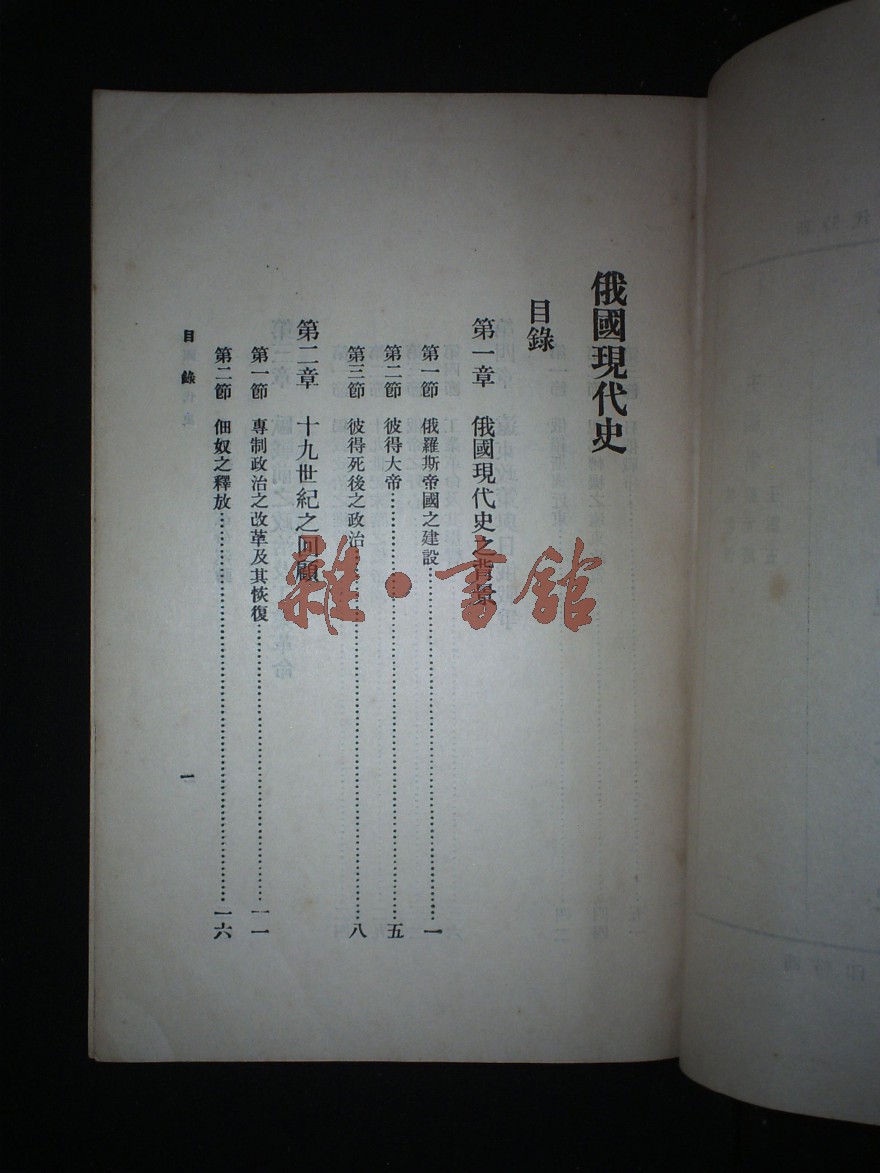 俄國現代史
目錄
第一章 俄國現代史之背景
第一節 俄羅斯帝國之建設……一
第二節 彼得大帝……五
第三節 彼得死後之政治……八
第二章 十九世紀之回顧
第一節 專制政治之改革及其恢復……一一
第二節 佃奴之釋放……一六
目錄
一
雜·書館